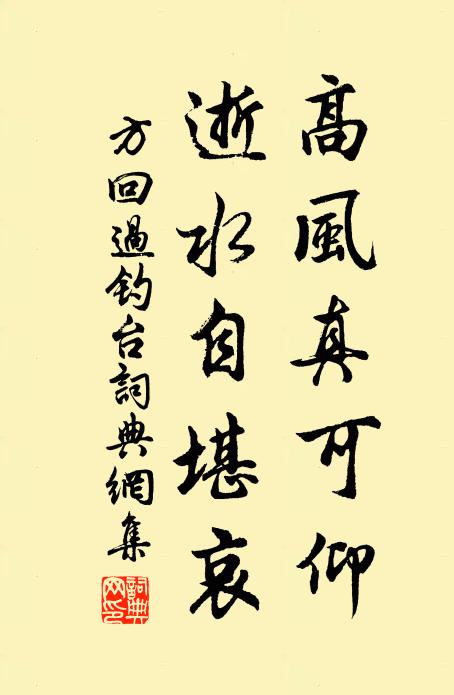 高風真可仰
逝水自堪哀
方回過釣台詞典網集
詞典網印